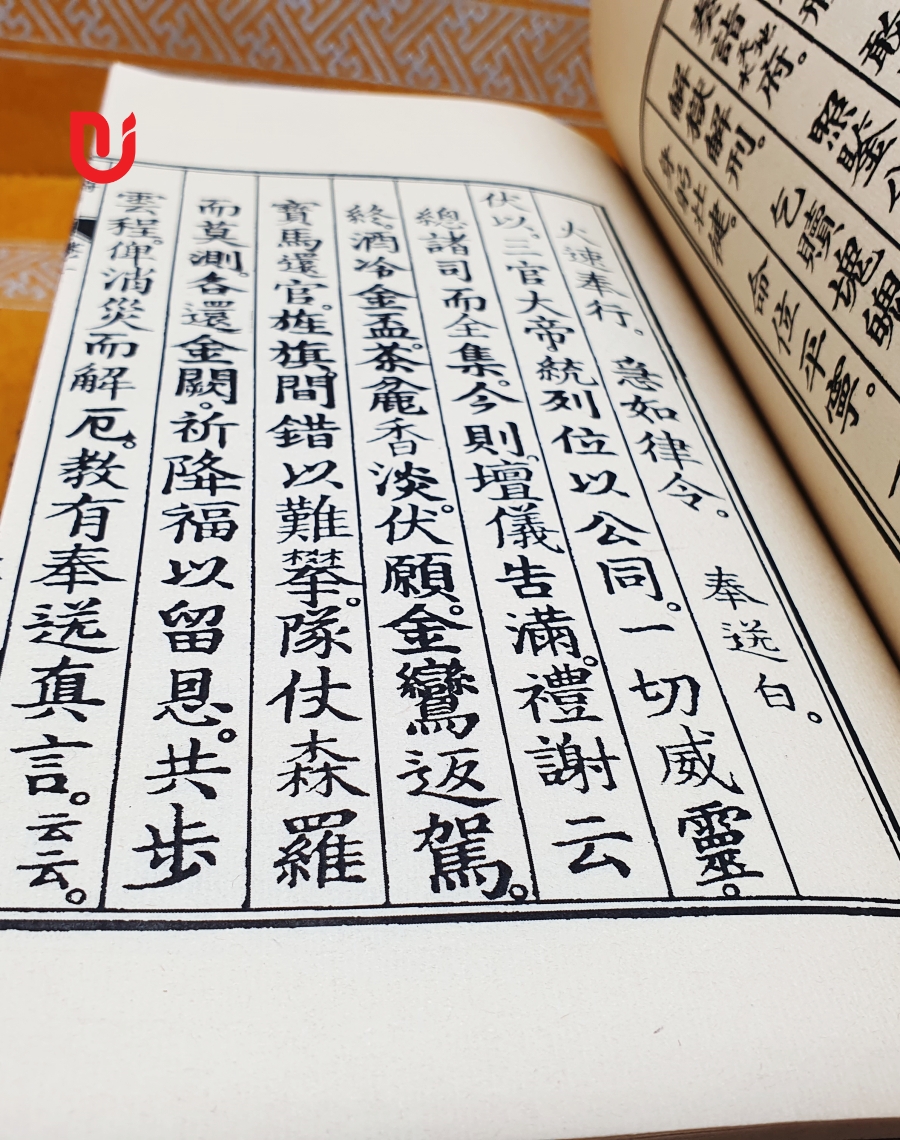 敢
奏詣天地水府。照鑒
解獄解刑。乞贖魂魄
命位平寧。
火速奉行。急如律令。奉送白。
伏以。三官大帝統列位以公同。一切威靈。
總諸司而全集。今則壇儀告滿。禮謝云
終。酒冷金盃。茶
香淡。伏願。金鸞返駕。
寶馬還官。旌旗間錯以難攀。隊仗森羅
而莫測。各還金闕。祈降福以留恩。共步
雲程。仰消災而解厄。教有奉送真言。云云。